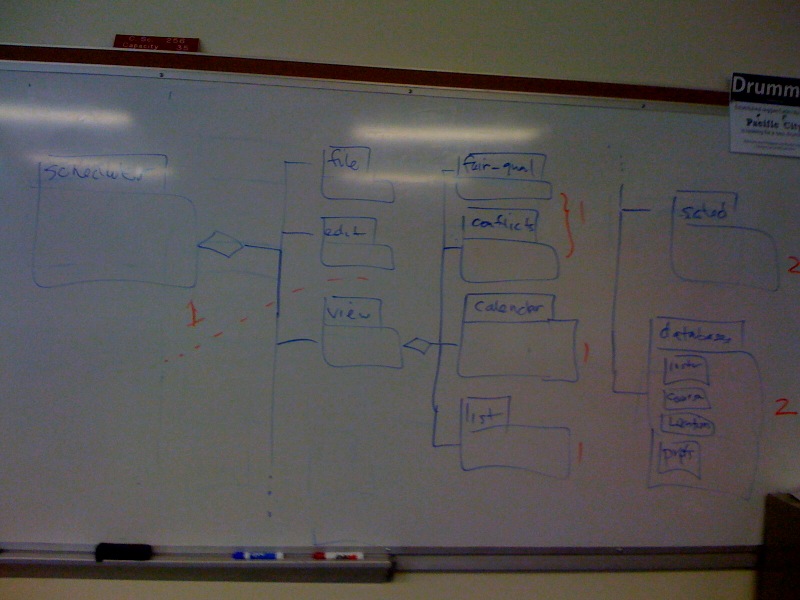 C. Sc. 256
Capacity 35
Drumm
Pacific Cit
scheduler
file
edit
view
1
fair-qual
conflicts
1
calendar
1
list
1
sched
2
databases
instr
course
location
prefs
2